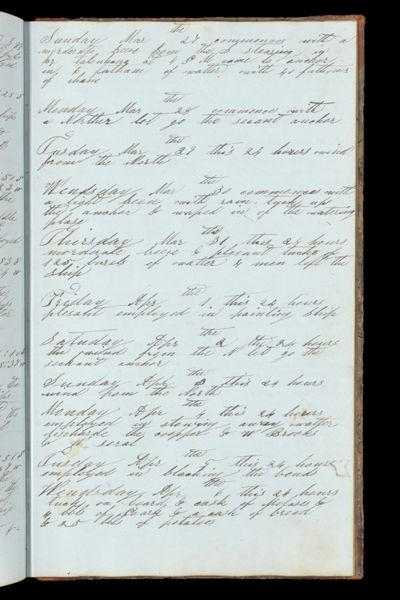 Sunday Mar the 27 commences with a
morderate breeze from the S stearing in
for talcahuano at 6 P M came to anchor
in 6 fathom of watter with 40 fathoms
of chane
Munday Mar the 28 commences with
a Norther let go the secant anchor
Tuesday Mar the 29 this 24 hours wind
from the North
Wensday Mar the 30 commences with
a light breese with rain took up
the anchor & warped in of the watering
place
Thirsday Mar the 31 this 24 hours
morderate breeze & plesant took of
125 barels of watter 4 men left the
ship
Friday Apr the 1 this 24 hours
plesant employed in painting ship
Satuday Apr the 2 this 24 hours
the wind from the N let go the
seckant anchor
Sunday Apr the 3 this 24 hours
wind from the North
Monday Apr the 4 this 24 hours
employed in stowing away watter
discharge the cooper & W Brooks
&
Tusday Apr the 5 this 24 hours
employed in blacking the bends
Wensday Apr the 6 this 24 hours
took on board 2 cask of Molases &
4 bbls of Pork & a cask of bread
& 25 bbs of potatoes